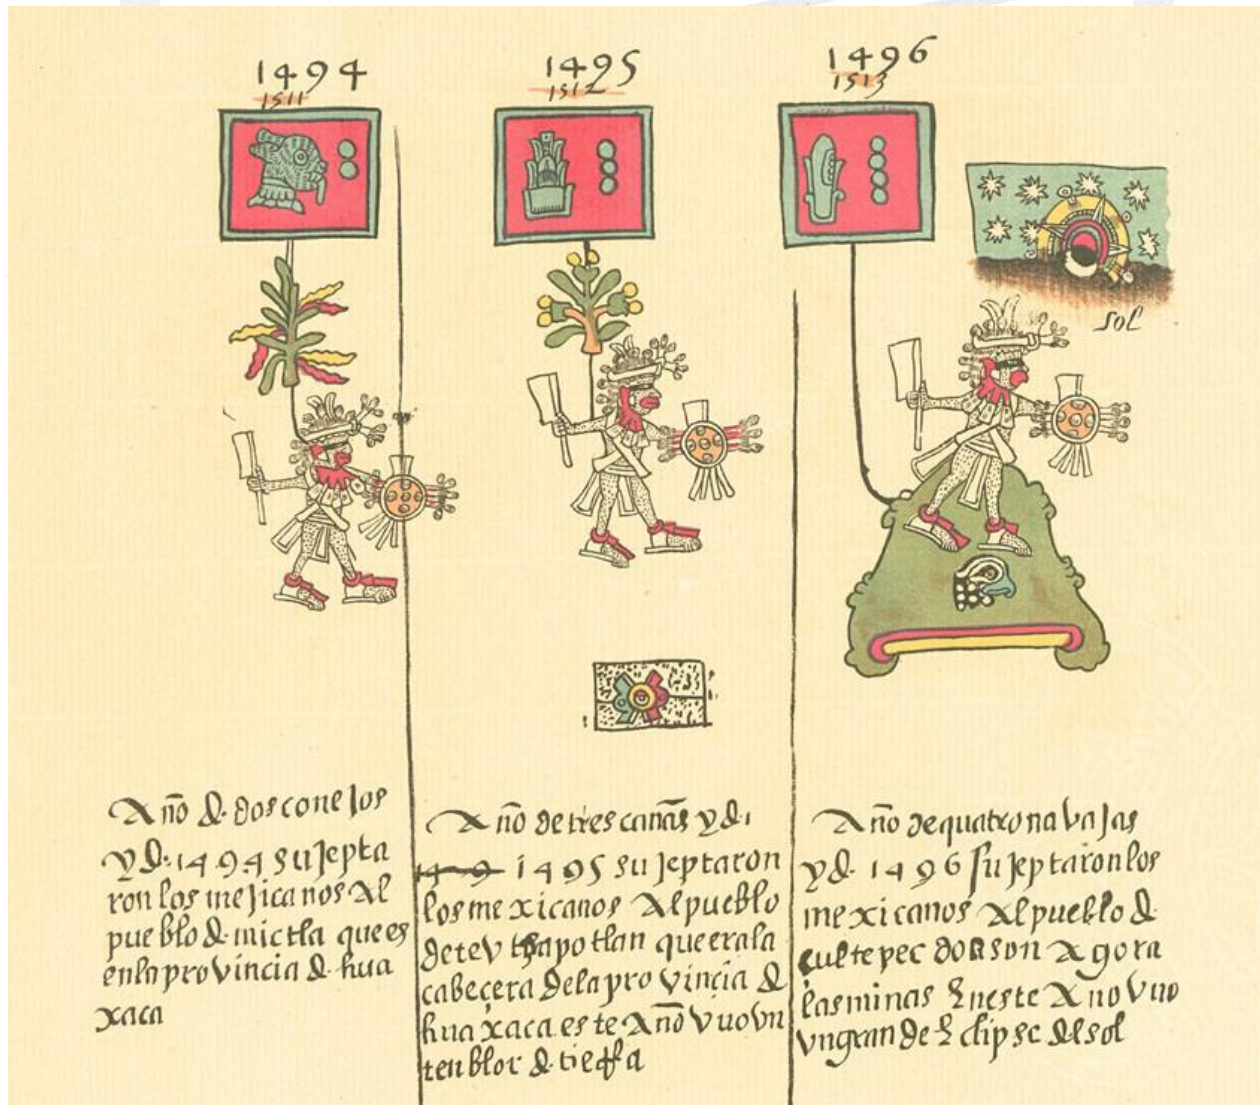 1494
1511
1495
1512
1496
1513
sol
Año d. dos conejos
y d. 1494 sujepta
ron los mejicanos Al
pueblo d. mictla que es
en la provincia d. hua
xaca
Año de tres cañas y d.
149 1495 sujeptaron
los mexicanos Al pueblo
de teutzapotlan que era la
cabeçera dela provinçia d.
huaxaca este Año vuo vn
tenblor d. tierra
Año de quatro navajas
y d. 1496 sujeptaron los
mexicanos Al pueblo d.
çultepec do son Agora
las minas Eneste Año vuo
vn grande Eclipse del sol